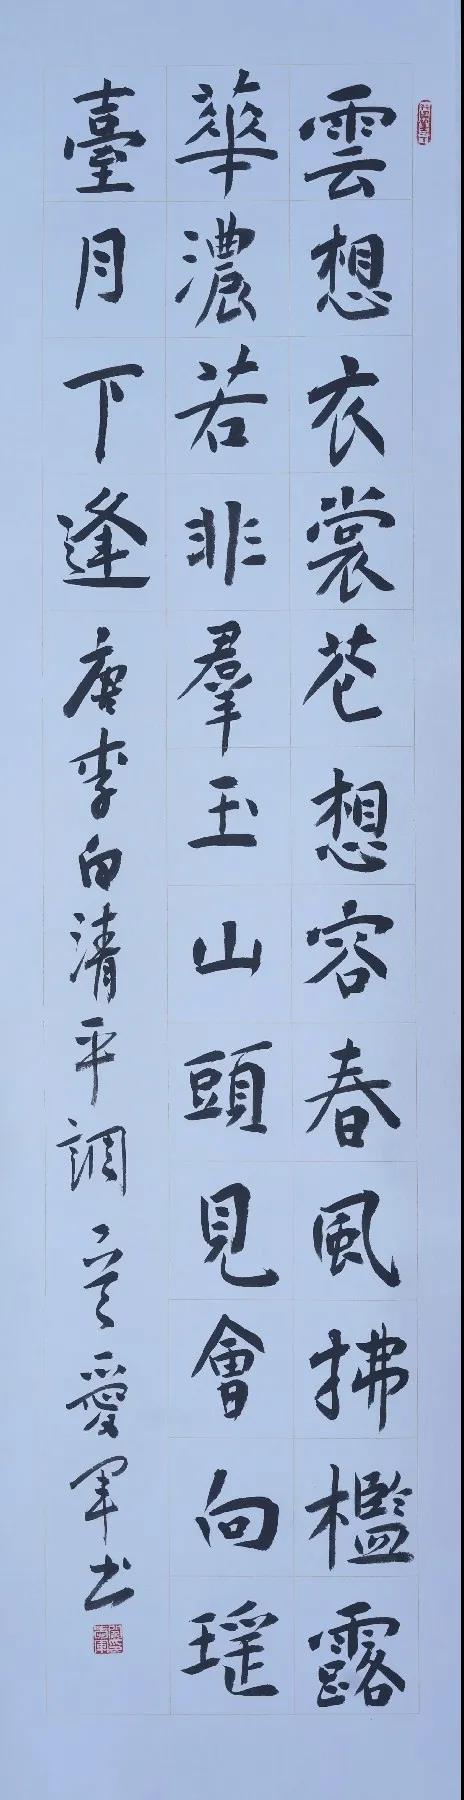 雲想衣裳花想容春風拂檻露
華濃若非羣玉山頭見會向瑤
臺月下逢 唐李白清平調 愛軍书